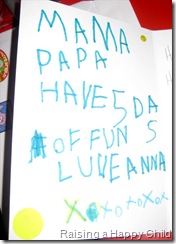 MAMA
PAPA
HAVE 5 DA
OF FUN S
LUVEANNA
XoXoXoXoX
Raising a Happy Child